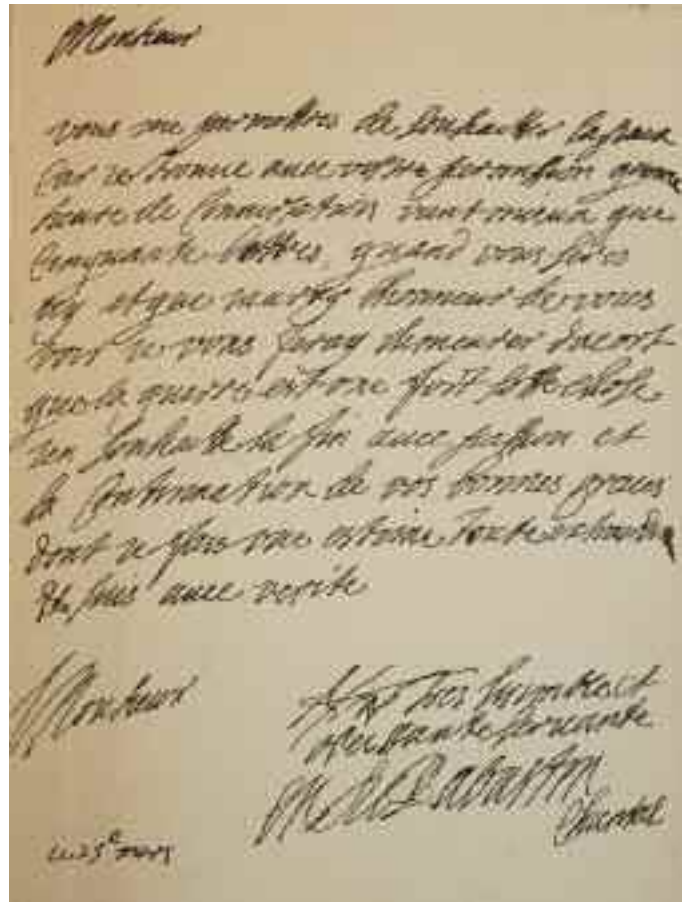 Monsieur
vous me permettres de souhaitter la paix
Car je trouue auec vostre permission qune
heure de Conuersation vaut mieux que
Cinquante lettres, quand vous seres
icy et que iauray lhonneur de vous
voir je vous feray demeurer dacort
que la guerre est une fort sotte chose
jen souhaitte la fin auec passion et
la Continuation de vos bonnes graces
dont je fais une estime toute
suis auec verité
Monsieur
Vostre tres humble et
seruante
M de Rabutin
Chantal
le 25e mars